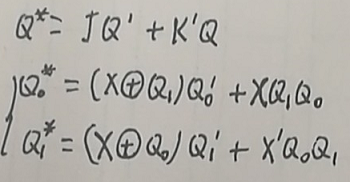 Q* = JQ' + K'Q
Q₀* = (X⊕Q₁)Q₀' + XQ₁Q₀
Q₁* = (X⊕Q₀)Q₁' + X'Q₀Q₁